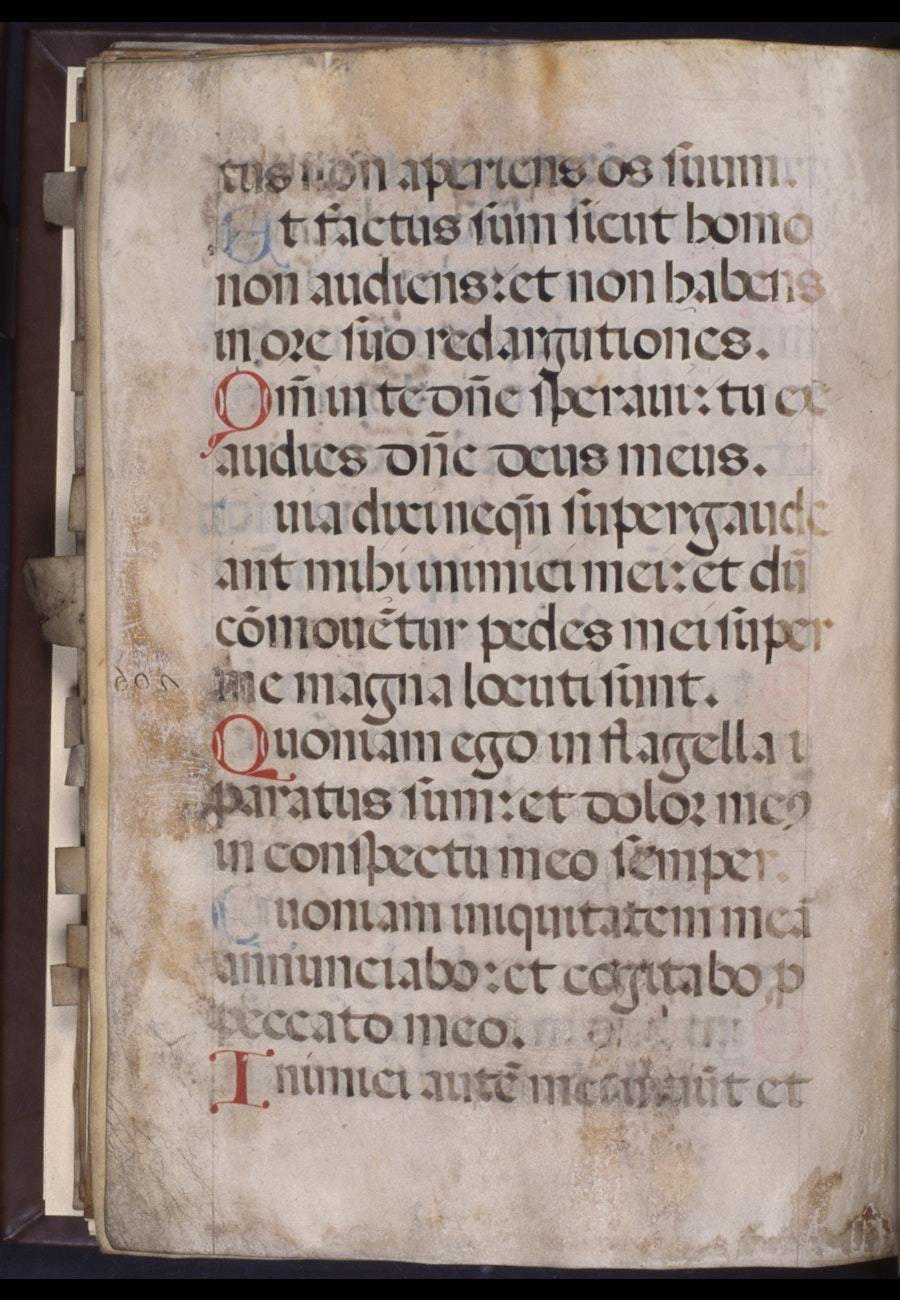 tus non aperiens os suum.
Et factus sum sicut homo
non audiens: et non habens
in ore suo redargutiones.
Qm̄ in te dn̄e speraui: tu ex
audies dn̄e deus meus.
uia dixi neqn̄ supergaude
ant mihi inimici mei: et dū
cōmouētur pedes mei super
me magna locuti sunt.
Quoniam ego in flagella
paratus sum: et dolor meꝰ
in conspectu meo semper.
Quoniam iniquitatem meā
annunciabo: et cogitabo p
peccato meo.
Inimici autē mei uiuūt et